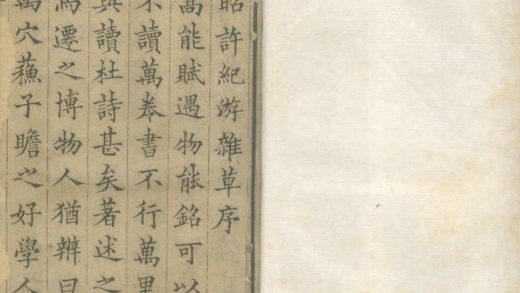 昭許紀游雜草序
高能賦遇物能銘可以
不讀萬卷書不行萬里
與讀杜詩甚矣著述之
馬遷之博物人猶辨曰
萬穴蘓子瞻之好學人